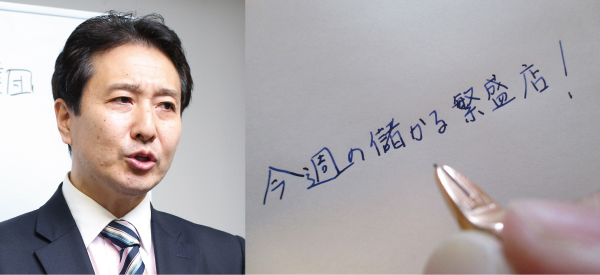 団
今週の儲かる繁盛店！